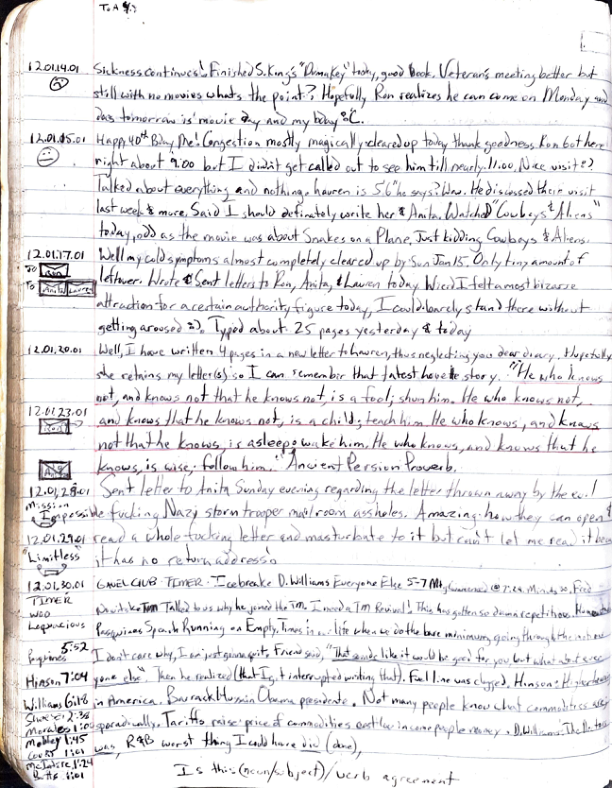 12.01.14.01 Sickness continues! Finished S. King's "Duma Key" today, good book. Veteran's meeting better but
still with no movies what's the point? Hopefully Ron realizes he can come on Monday
tomorrow is movie day and my bday
12.01.15.01 Happy 40th Bday Me! Congestion mostly magically cleared up today thank goodness. Ron got here
right about 9:00 but I didn't get called out to see him till nearly 11:00. Nice visit
Talked about everything and nothing. Lauren is 5'6" he says? Wow. He discussed their visit
last week & more. Said I should definately write her & Anita. Watched "Cowboys & Aliens"
today, odd as the movie was about Snakes on a Plane, Just kidding Cowboys & Aliens.
12.01.17.01 Well my cold symptoms almost completely cleared up by Sun Jan 15. Only tiny amount of
To Ron leftover. Wrote & Sent letters to Ron, Anita, & Lauren today. I felt a most bizarre
To Anita attraction for a certain authority figure today, I could barely stand there without
getting aroused =). Typed about 25 pages yesterday & today
12.01.20.01 Well, I have written 4 pages in a new letter to Lauren, thus neglecting you dear diary. Hopefully
she retains my letter(s) so I can remember that story. "He who knows
not, and knows not that he knows not, is a fool; shun him. He who knows not,
12.01.23.01 and knows that he knows not, is a child; teach him. He who knows, and knows
not that he knows, is asleep; wake him. He who knows, and knows that he
knows, is wise; follow him." Ancient Persion Proverb.
12.01.28.01 Sent letter to Anita Sunday evening regarding the letter thrown away by the evil
Mission Impossible fucking Nazy storm trooper mailroom assholes. Amazing how they can open &
12.01.29.01 read a whole fucking letter and masturbate to it but can't let me read it
"Limitless" it has no return address!
12.01.30.01 GAVEL CLUB - TIMER - Icebreaker D. Williams Everyone Else 5-7 M
TIMER Talked bout why he joined the TM. I need a TM Revival! This has gotten so damn repetitive.
was Running on Empty. Times in life when we do the bare minimum, going through the
5:52 I don't care why, I am just gonna quit. Friend said, "That sounds like it would be good for you but what about
Hinson 7:04 else". Then he realized (that I interrupted writing that). Fuel line was clogged. Hinson:
Williams 6:18 in America. Barrack Hussain Obama presidente. Not many people know what commodities are
2:38 sporadically. Tariffs raise price of commodities D. Williams:
Morales
Mobley 1:45 was, R&B worst thing I could have did (done),
1:01
McIntire 1:24 Is this (noun/subject)/verb agreement
1:01